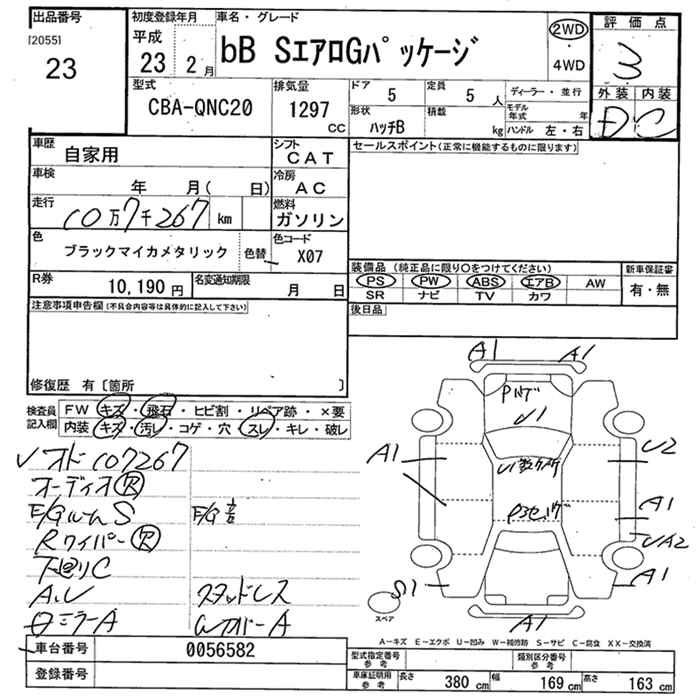 出品番号
[2055]
23
初度登録年月
平成
23年 2月
車名・グレード
bB SエアロGパッケージ
2WD
・
4WD
評価点
3
外装 内装
D C
型式
CBA-QNC20
排気量
1297
CC
ドア
5
定員
5 人
ディーラー・並行
形状
ハッチB
積載
kg
モデル年式 年
ハンドル 左・右
車歴
自家用
シフト
CAT
セールスポイント(正常に機能するものに限ります)
車検
年 月( 日)
冷房
AC
走行
10万7千267 km
燃料
ガソリン
色
ブラックマイカメタリック
色替
色コード
X07
R券
10,190 円
名変通知期限
月 日
装備品 (純正品に限り○をつけてください)
新車保証書
PS PW ABS エアB AW
SR ナビ TV カワ
有・無
注意事項申告欄(不具合内容等は具体的に記入して下さい)
後日品
修復歴 有〔箇所 〕
検査員記入欄
FW キズ・飛石・ヒビ割・リペア跡・×要
内装 キズ・汚レ・コゲ・穴・スレ・キレ・破レ
オド107267
オーディオR
E/GルームS
E/G音
RワイパーR
下廻りC
A.U
スタッドレス
ミラーA
WカバーA
車台番号
0056582
登録番号
A1 A1
U1
A1
U2
A1
UA2
A1
S1
A1
スペア
A-キズ E-エクボ U-凹み W-補修跡 S-サビ C-腐食 XX-交換済
型式指定番号
参考
類別区分番号
参考
車庫証明用
参考
長さ 380 cm
幅 169 cm
高さ 163 cm